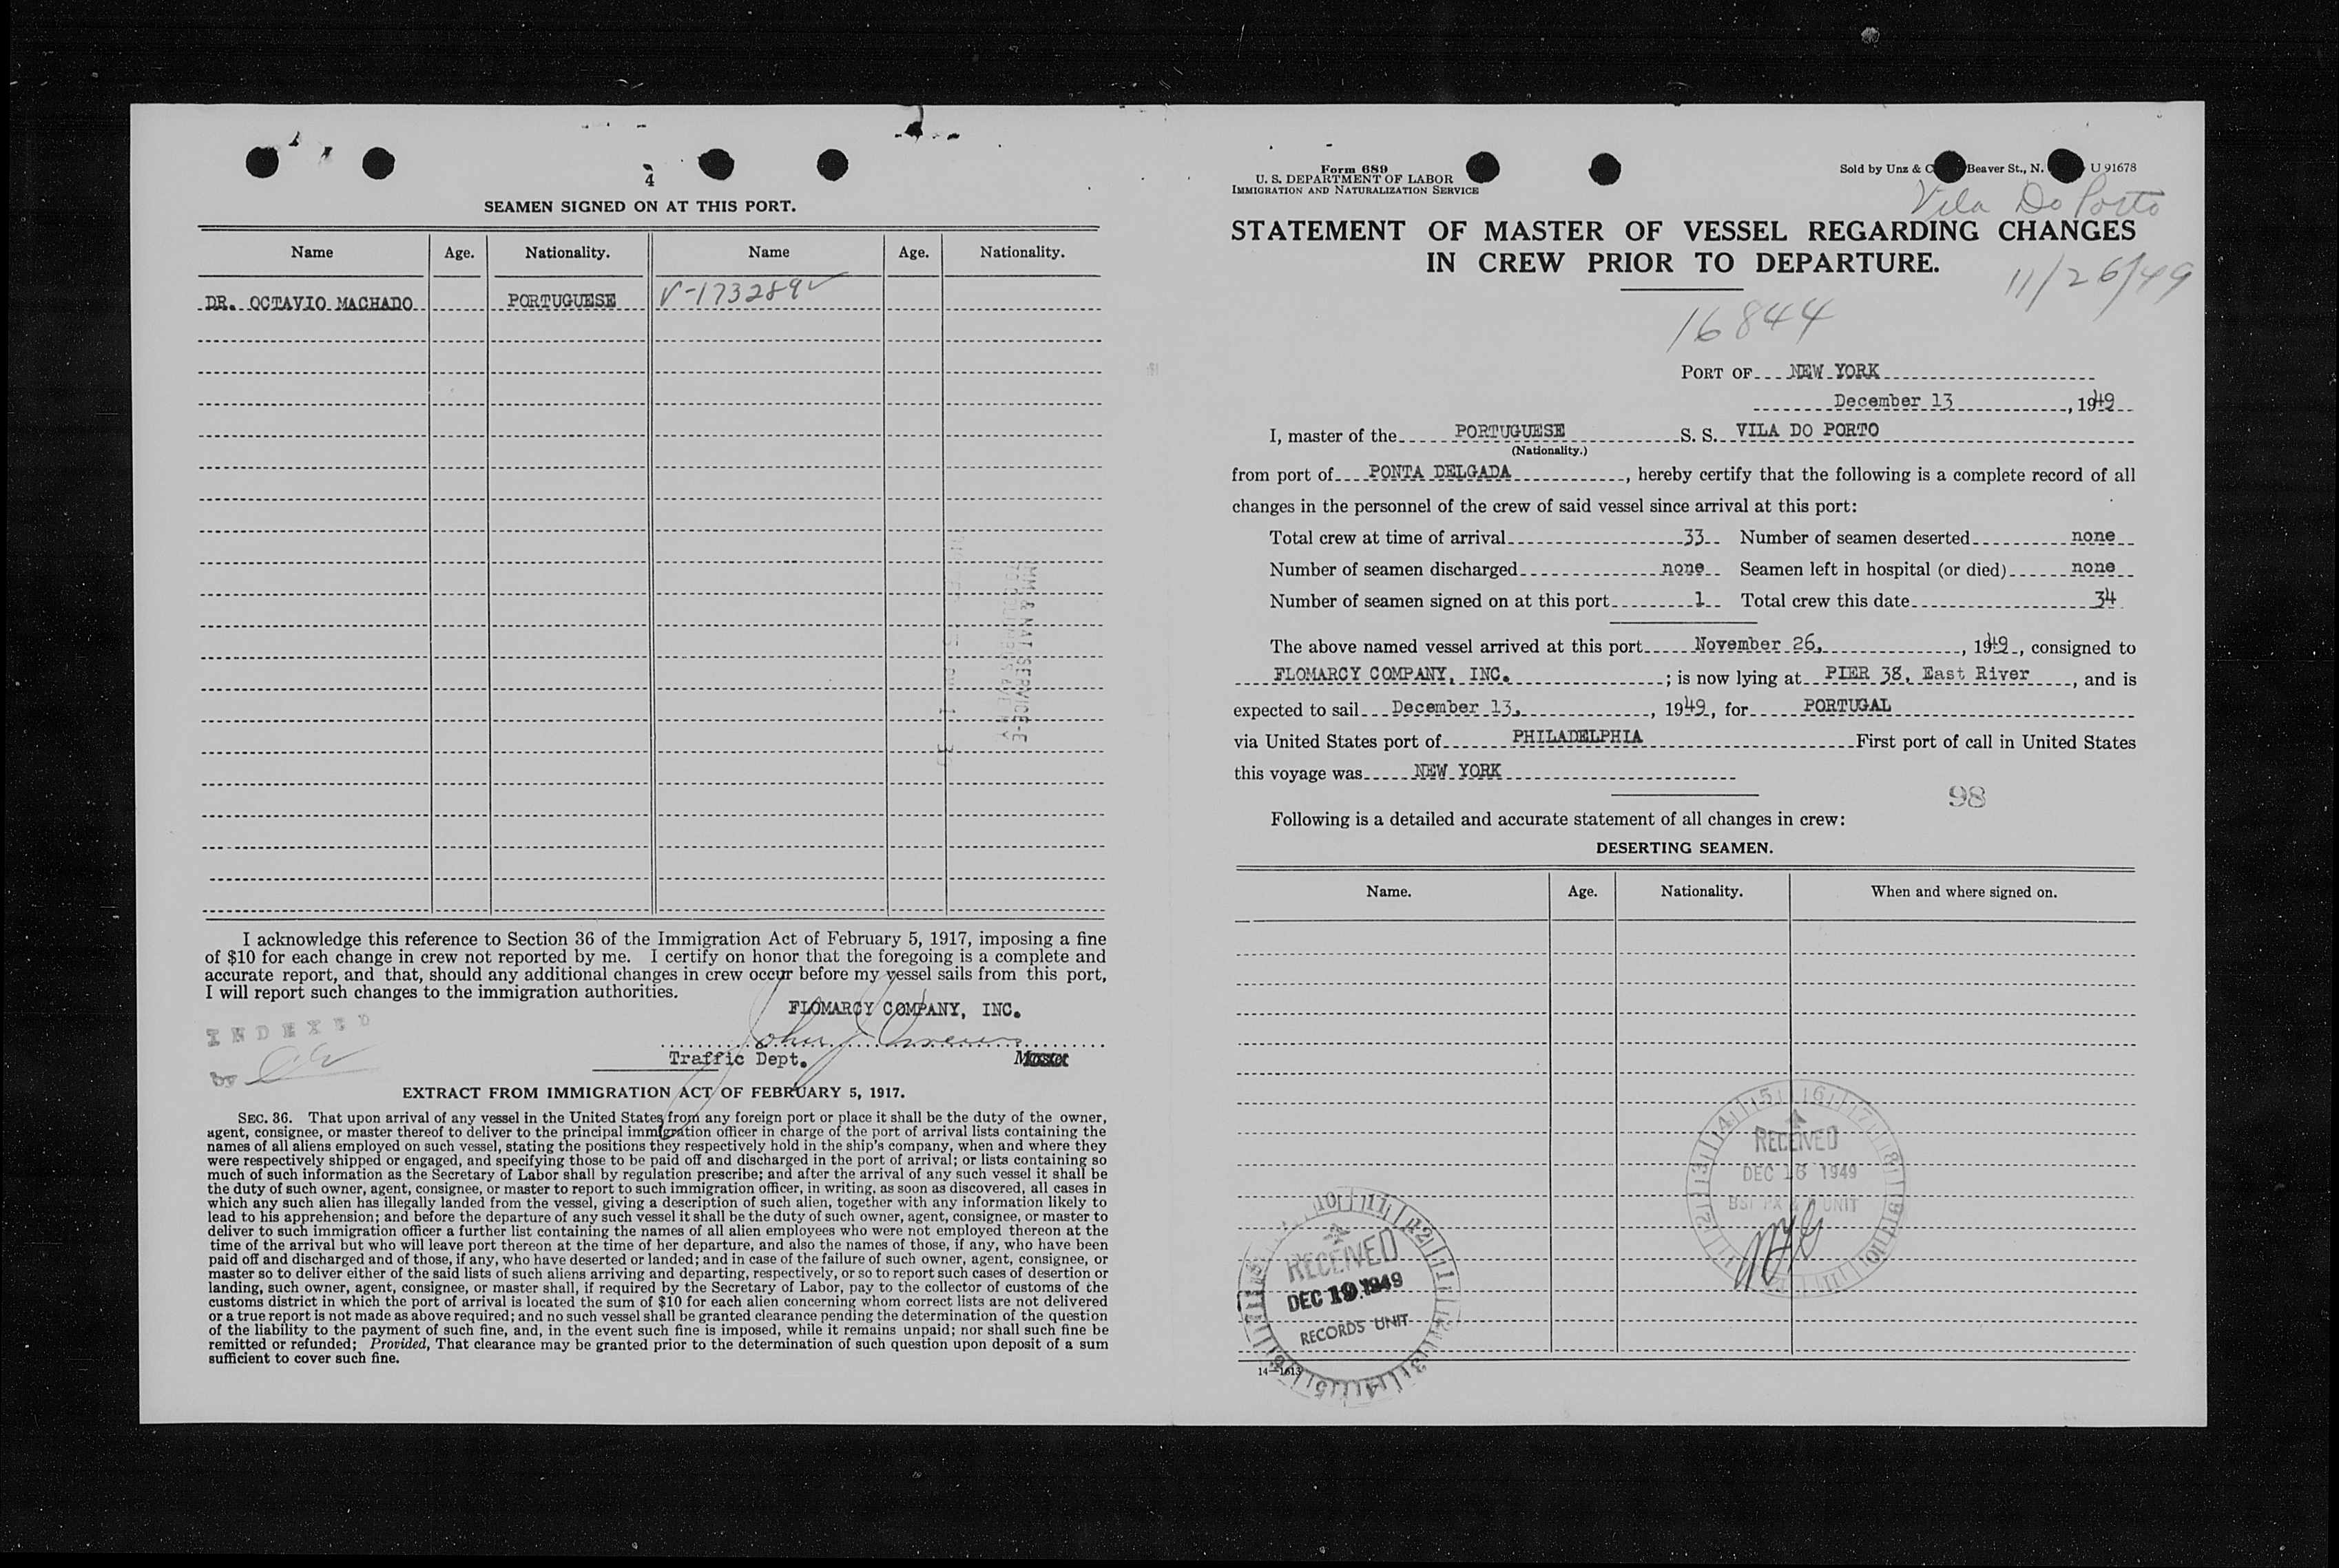 4
SEAMEN SIGNED ON AT THIS PORT.
Name Age. Nationality. Name Age. Nationality.
DR. OCTAVIO MACHADO PORTUGUESE V-173289
I acknowledge this reference to Section 36 of the Immigration Act of February 5, 1917, imposing a fine
of $10 for each change in crew not reported by me. I certify on honor that the foregoing is a complete and
accurate report, and that, should any additional changes in crew occur before my vessel sails from this port,
I will report such changes to the immigration authorities.
FLOMARCY COMPANY, INC.
INDEXED
by
Traffic Dept. Master
EXTRACT FROM IMMIGRATION ACT OF FEBRUARY 5, 1917.
SEC. 36. That upon arrival of any vessel in the United States from any foreign port or place it shall be the duty of the owner,
agent, consignee, or master thereof to deliver to the principal immigration officer in charge of the port of arrival lists containing the
names of all aliens employed on such vessel, stating the positions they respectively hold in the ship's company, when and where they
were respectively shipped or engaged, and specifying those to be paid off and discharged in the port of arrival; or lists containing so
much of such information as the Secretary of Labor shall by regulation prescribe; and after the arrival of any such vessel it shall be
the duty of such owner, agent, consignee, or master to report to such immigration officer, in writing, as soon as discovered, all cases in
which any such alien has illegally landed from the vessel, giving a description of such alien, together with any information likely to
lead to his apprehension; and before the departure of any such vessel it shall be the duty of such owner, agent, consignee, or master to
deliver to such immigration officer a further list containing the names of all alien employees who were not employed thereon at the
time of the arrival but who will leave port thereon at the time of her departure, and also the names of those, if any, who have been
paid off and discharged and of those, if any, who have deserted or landed; and in case of the failure of such owner, agent, consignee, or
master so to deliver either of the said lists of such aliens arriving and departing, respectively, or so to report such cases of desertion or
landing, such owner, agent, consignee, or master shall, if required by the Secretary of Labor, pay to the collector of customs of the
customs district in which the port of arrival is located the sum of $10 for each alien concerning whom correct lists are not delivered
or a true report is not made as above required; and no such vessel shall be granted clearance pending the determination of the question
of the liability to the payment of such fine, and, in the event such fine is imposed, while it remains unpaid; nor shall such fine be
remitted or refunded; Provided, That clearance may be granted prior to the determination of such question upon deposit of a sum
sufficient to cover such fine.
Form 689
U. S. DEPARTMENT OF LABOR
IMMIGRATION AND NATURALIZATION SERVICE
Sold by Unz & C Beaver St., N. U 91678
Vila Do Porto
STATEMENT OF MASTER OF VESSEL REGARDING CHANGES
IN CREW PRIOR TO DEPARTURE.
11/26/49
16844
PORT OF NEW YORK
December 13, 1949
I, master of the PORTUGUESE S. S. VILA DO PORTO
(Nationality.)
from port of PONTA DELGADA, hereby certify that the following is a complete record of all
changes in the personnel of the crew of said vessel since arrival at this port:
Total crew at time of arrival 33 Number of seamen deserted none
Number of seamen discharged none Seamen left in hospital (or died) none
Number of seamen signed on at this port 1 Total crew this date 34
The above named vessel arrived at this port November 26, , 1949, consigned to
FLOMARCY COMPANY, INC. ; is now lying at PIER 38, East River, and is
expected to sail December 13, , 1949, for PORTUGAL
via United States port of PHILADELPHIA First port of call in United States
this voyage was NEW YORK
98
Following is a detailed and accurate statement of all changes in crew:
DESERTING SEAMEN.
Name. Age. Nationality. When and where signed on.
RECEIVED
DEC 16 1949
UNIT
RECEIVED
DEC 19 1949
RECORDS UNIT
14—1613